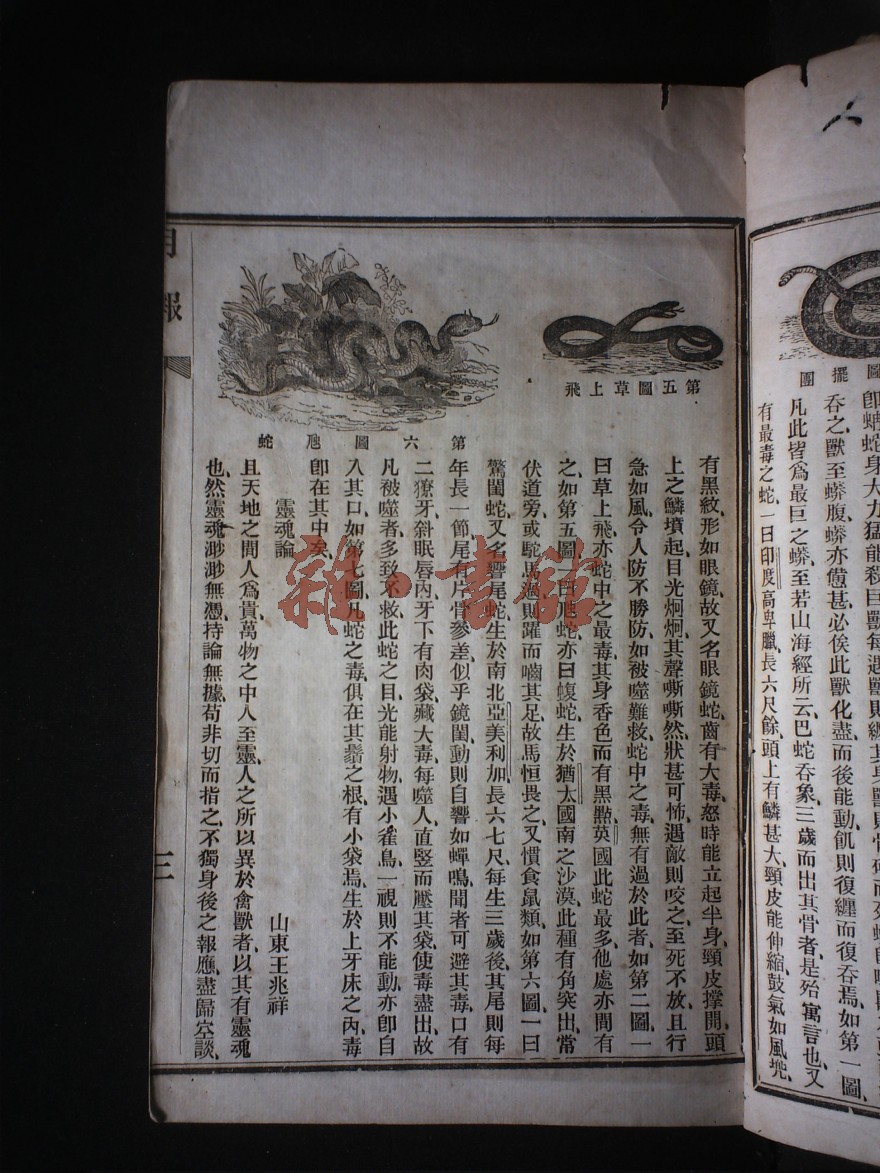 圖 擺 團
即蟒蛇身大力猛能殺巨獸每遇獸則纏其身獸則骨碎而死蟒
吞之獸至蟒腹蟒亦憊甚必俟此獸化盡而後能動飢則復纏而復吞焉如第一圖
凡此皆爲最巨之蟒至若山海經所云巴蛇吞象三歲而出其骨者是殆寓言也又
有最毒之蛇一曰印度高卑臘長六尺餘頭上有鱗甚大頸皮能伸縮鼓氣如風兜
第五圖草上飛
第六圖虺蛇
有黑紋形如眼鏡故又名眼鏡蛇齒有大毒怒時能立起半身頸皮撑開頭
上之鱗墳起目光炯炯其聲嘶嘶然狀甚可怖遇敵則咬之至死不放且行
急如風令人防不勝防如被噬難救蛇中之毒無有過於此者如第二圖一
曰草上飛亦蛇中之最毒其身香色而有黑㸃英國此蛇最多他處亦間有
之如第五圖一曰虺蛇亦曰蝮蛇生於猶太國南之沙漠此種有角突出常
伏道旁或駝馬過則躍而嚙其足故馬恒畏之又慣食鼠類如第六圖一曰
驚闔蛇又名響尾蛇生於南北亞美利加長六七尺每生三歲後其尾則每
年長一節尾有片骨參差似乎鏡闔動則自響如蟬鳴聞者可避其毒口有
二獠牙斜眠唇內牙下有肉袋藏大毒每噬人直竪而壓其袋使毒盡出故
凡被噬者多致不救此蛇之目光能射物遇小雀鳥一視則不能動亦卽自
入其口如第七圖凡蛇之毒俱在其齶之根有小袋焉生於上牙床之內毒
卽在其中矣
靈魂論
山東王兆祥
且天地之間人爲貴萬物之中人至靈人之所以異於禽獸者以其有靈魂
也然靈魂渺渺無憑持論無據苟非切而指之不獨身後之報應盡歸空談
月報
三
雜·書館